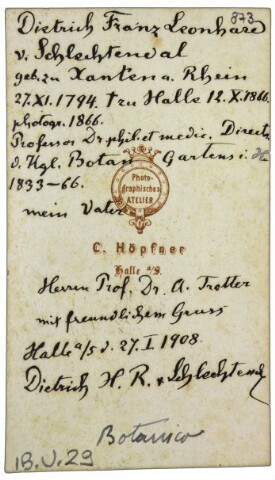 873
Dietrich Franz Leonhard
v. Schlechtendal
geb. zu Xanten a. Rhein
27.XI.1794. † zu Halle 12.X.1866.
photogr. 1866.
Professor Dr phil. et medic. Direct.
d. Kgl. Botan Gartens i. H
1833–66.
mein Vater
Photo-
graphisches
ATELIER
C. Höpfner
Halle a/S.
Herrn Prof. Dr. A. Trotter
mit freundlichem Gruss
Halle a/S d. 27. I 1908.
Dietrich H. R. v Schlechtend
Botanico
IB.V.29